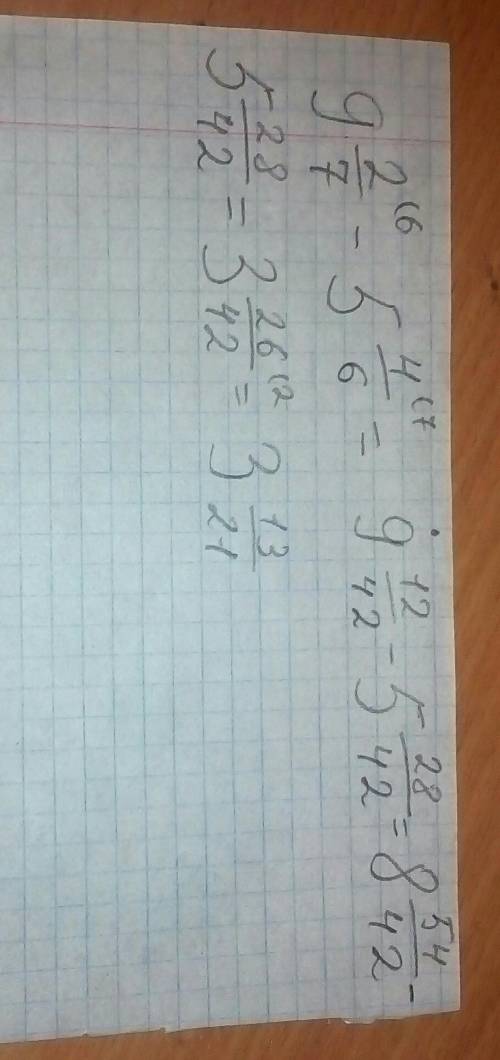 9 2/7 (6 - 5 4/6 (7 = 9 12/42 - 5 28/42 = 8 54/42 -
5 28/42 = 3 26/42 (2 = 3 13/21